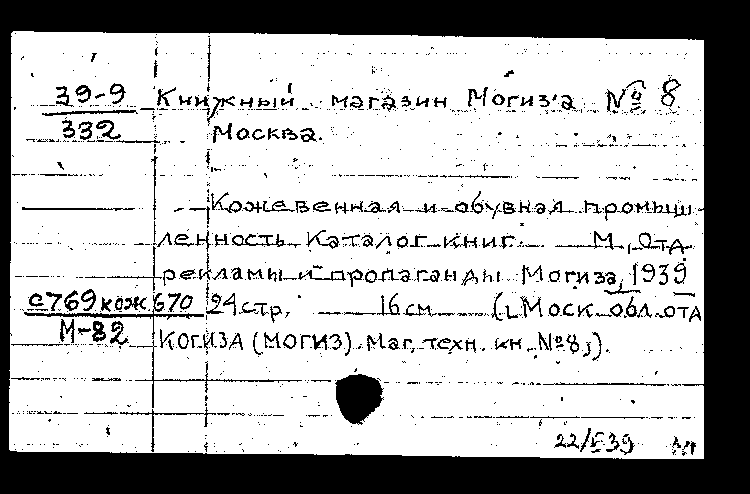 39-9 Книжный магазин Могиз'а № 8
332 Москва.
Кожевенная и обувная промыш-
ленность. Каталог книг. М., Отд.
рекламы и пропаганды Могиза, 1939
с769кож670 24стр. 16см ([Моск. обл. отд
М-82 КОГИЗА (МОГИЗ). Маг. техн. кн. №8]).
22/ 39